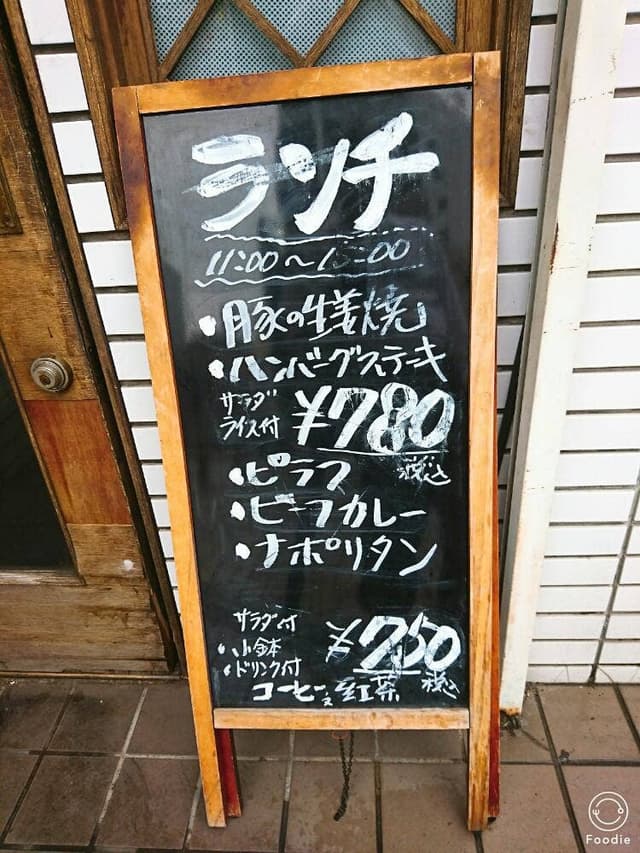 ランチ
11:00〜15:00
・豚の生姜焼
・ハンバーグステーキ
サラダ
ライス付
¥780
税込
・ピラフ
・ビーフカレー
・ナポリタン
サラダ付
・小鉢
・ドリンク付
¥750
コーヒー 紅茶
税込
Foodie